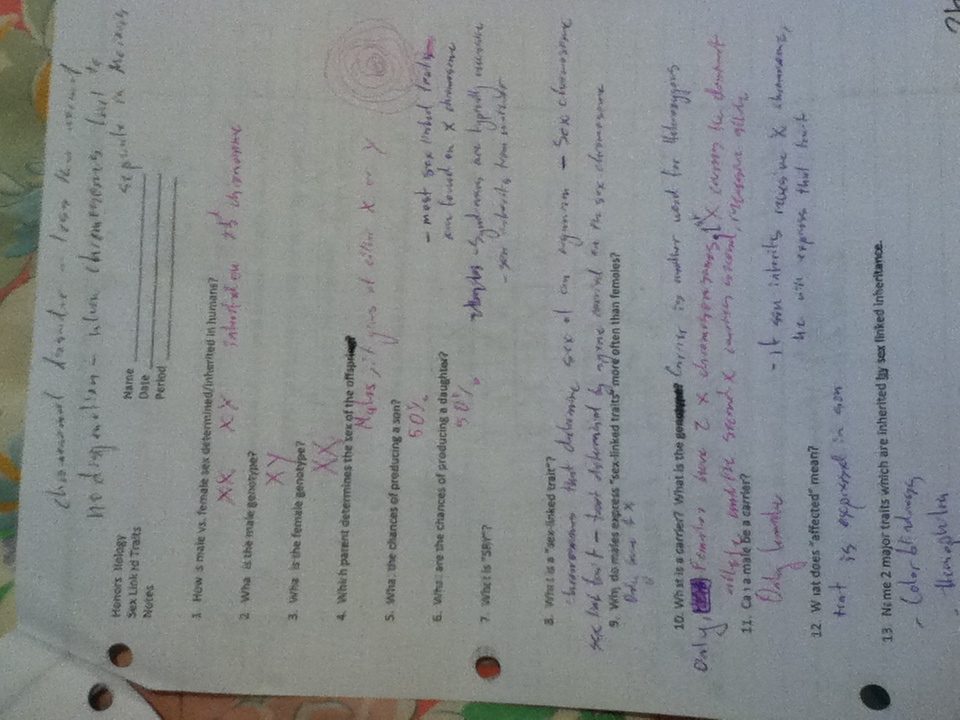 chromosomal disorder - less than normal
nodisjunction - when chromosomes fail to
separate in Meiosis
Honors Biology
Sex Linked Traits
Notes
Name
Date
Period
1. How is male vs. female sex determined/inherited in humans?
XX XY inherited on 23rd chromosome
2. What is the male genotype?
XY
3. What is the female genotype?
XX
4. Which parent determines the sex of the offspring?
Males, it gives either X or Y
5. What the chances of producing a son?
50%
6. What are the chances of producing a daughter?
50%
- most sex linked traits
are found on X chromosome
- Syndromes are typically recessive
- son inherits from mother
7. What is "SRY"?
8. What is a "sex-linked trait"?
chromosomes that determine sex of an organism - Sex chromosome
sex linked trait - trait determined by a gene carried on the sex chromosome
9. Why do males express "sex-linked traits" more often than females?
Only have 1 X
10. What is a carrier? What is the genotype? Carrier is another word for Heterozygous
Only, Females have 2 X chromosomes, 1st X carries the dominant
allele and the second X carries second, recessive allele
11. Can a male be a carrier?
Only female
- if son inherits recessive X chromosome,
he will express that trait
12. What does "affected" mean?
trait is expressed in son
13. Name 2 major traits which are inherited by sex linked inheritance.
- Color blindness
- Hemophilia